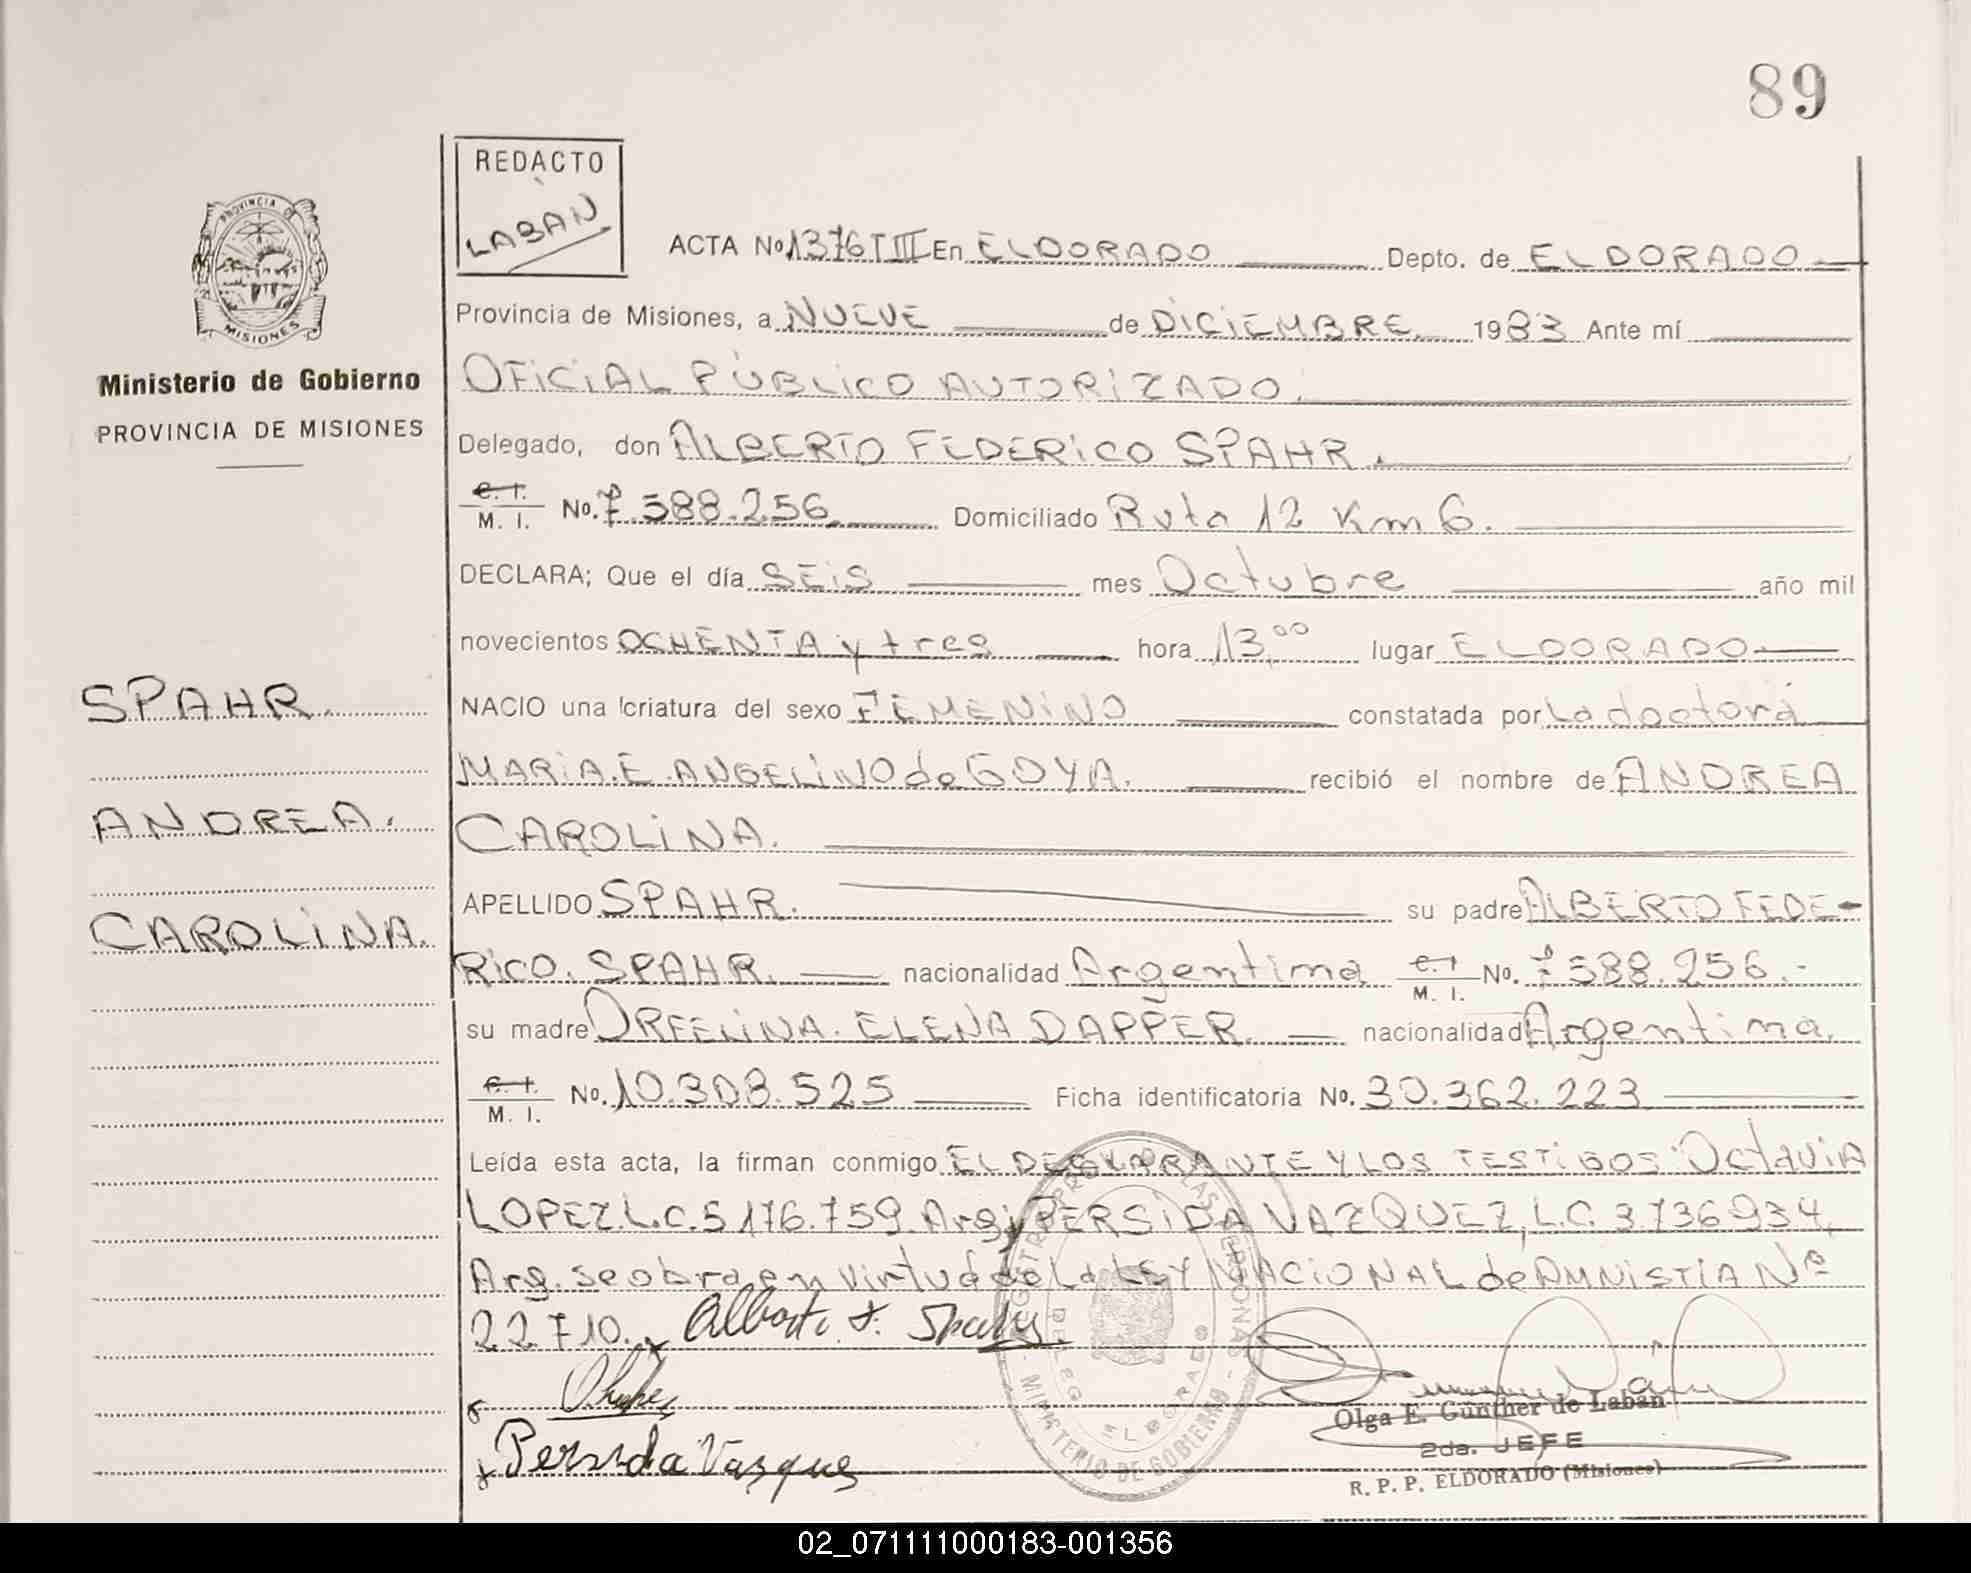 89
REDACTO
LABAN
PROVINCIA DE
MISIONES
Ministerio de Gobierno
PROVINCIA DE MISIONES
ACTA No 1376 T III En ELDORADO Depto. de ELDORADO
Provincia de Misiones, a NUEVE de DICIEMBRE. 1983 Ante mí
OFICIAL PÚBLICO AUTORIZADO.
Delegado, don ALBERTO FEDERICO SPAHR.
C. I. M. I. No. 7.588.256 Domiciliado Ruta 12 Km 6.
DECLARA; Que el día SEIS mes Octubre año mil
novecientos OCHENTA y tres hora 13,00 lugar ELDORADO
SPAHR.
NACIO una criatura del sexo FEMENINO constatada por La doctora
MARIA.E.ANGELINO de GOYA. recibió el nombre de ANDREA
ANDREA.
CAROLINA.
APELLIDO SPAHR. su padre ALBERTO FEDE-
CAROLINA.
RICO. SPAHR. nacionalidad Argentina C. I. M. I. No. 7588.256.-
su madre ORFELINA. ELENA DAPPER. nacionalidad Argentina.
C. I. M. I. No. 10.308.525 Ficha identificatoria No. 30.362.223
Leída esta acta, la firman conmigo EL DECLARANTE Y LOS TESTIGOS: Octavia
LOPEZ.L.C.5176.759.Arg y PERSIDA VAZQUEZ, L.C. 3736934,
Arg. se obra en virtud de La LEY NACIONAL de AMNISTIA Nº
22710. Alberto F. Spahr
Persida Vasques
MINISTERIO DE GOBIERNO
ELDORADO
Olga E. Günther de Labán
2da. JEFE
R. P. P. ELDORADO (Misiones)
02_071111000183-001356